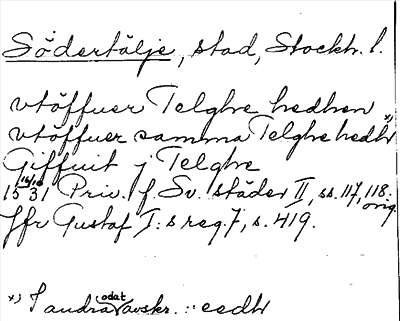 Södertälje, stad, Stockh. l.
vtöffuer Telghe hedhen
vtöffuer samma Telghe hedh x)
Giffuit j Telghe
15 16/10 31 Priv. f. Sv. städer II, ss. 117, 118. orig.
Jfr Gustaf I:s reg. 7, s. 419.
x) I andra odat avskr. :: eedh